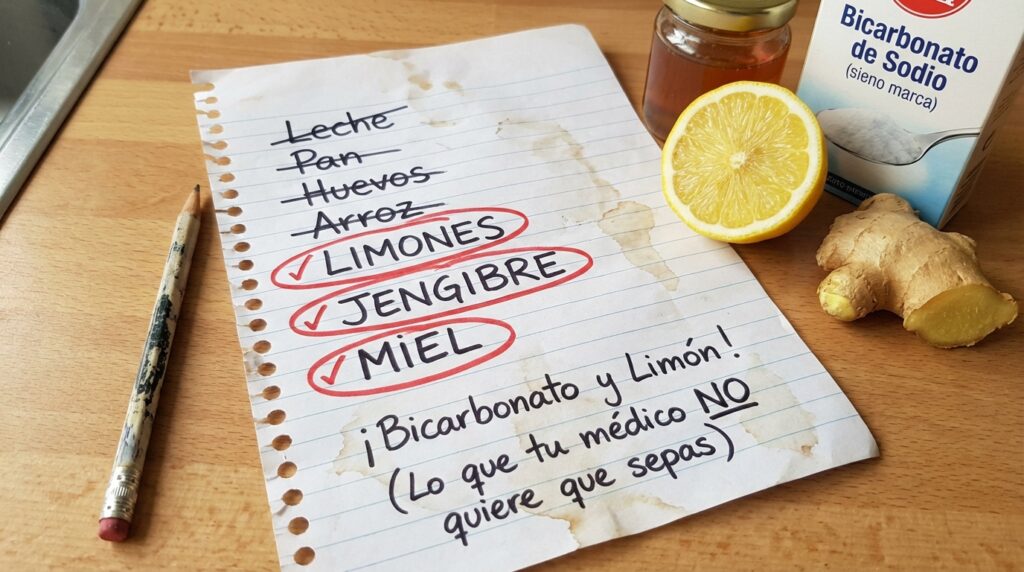 Leche
Pan
Huevos
Arroz
✓ LIMONES
✓ JENGIBRE
✓ MiEL
¡Bicarbonato y Limón!
(Lo que tu médico NO
quiere que sepas)
Bicarbonato
de Sodio
(sieno marca)